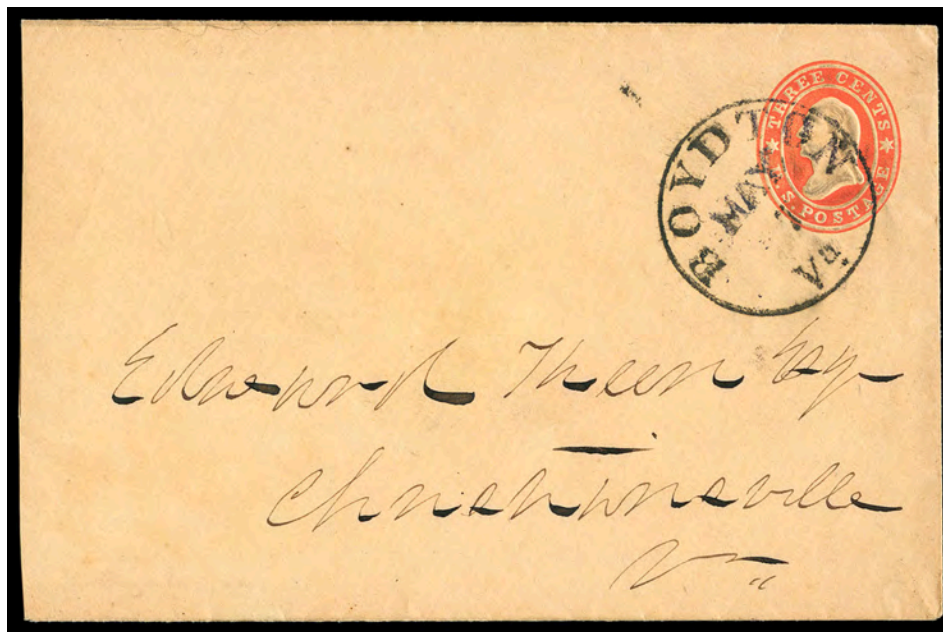 THREE CENTS
U.S. POSTAGE
BOYDTON
MAY
Va
Edward
Esqr
Christiansville
Va